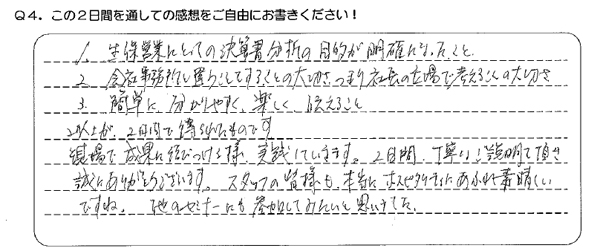 Q4. この2日間を通しての感想をご自由にお書きください!
1. 生保営業にとっての決算書分析の目的が明確になったこと
2. 会社を買うことをすることの大切さ つまり社長の立場で考えることの大切さ
3. 簡単に、分かりやすく、楽しく、伝えること
以上が、2日間で得られたものです
現場で成果に結びつける様、実践していきます。2日間、丁寧にご説明て頂き
誠にありがとうございます。スタッフの皆様も、本当にホスピタリティにあふれ素晴しい
ですね。他のセミナーにも参加してみたいと思いました。